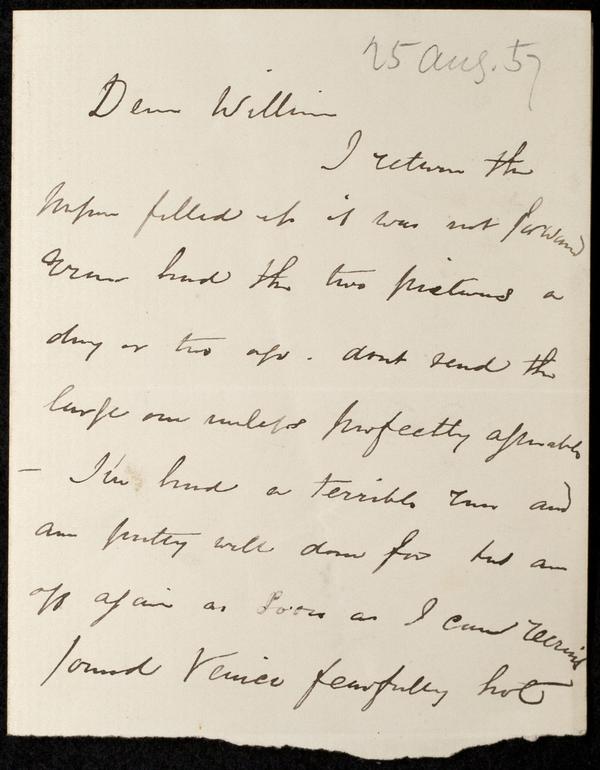 25 Aug. 57
Dear William
I return the
paper filled up it was not forward
had the two pictures a
day or two ago. dont send the
large one unless perfectly agreeable
– I've had a terrible run and
am pretty well done for but am
off again as soon as I can
found Venice fearfully hot